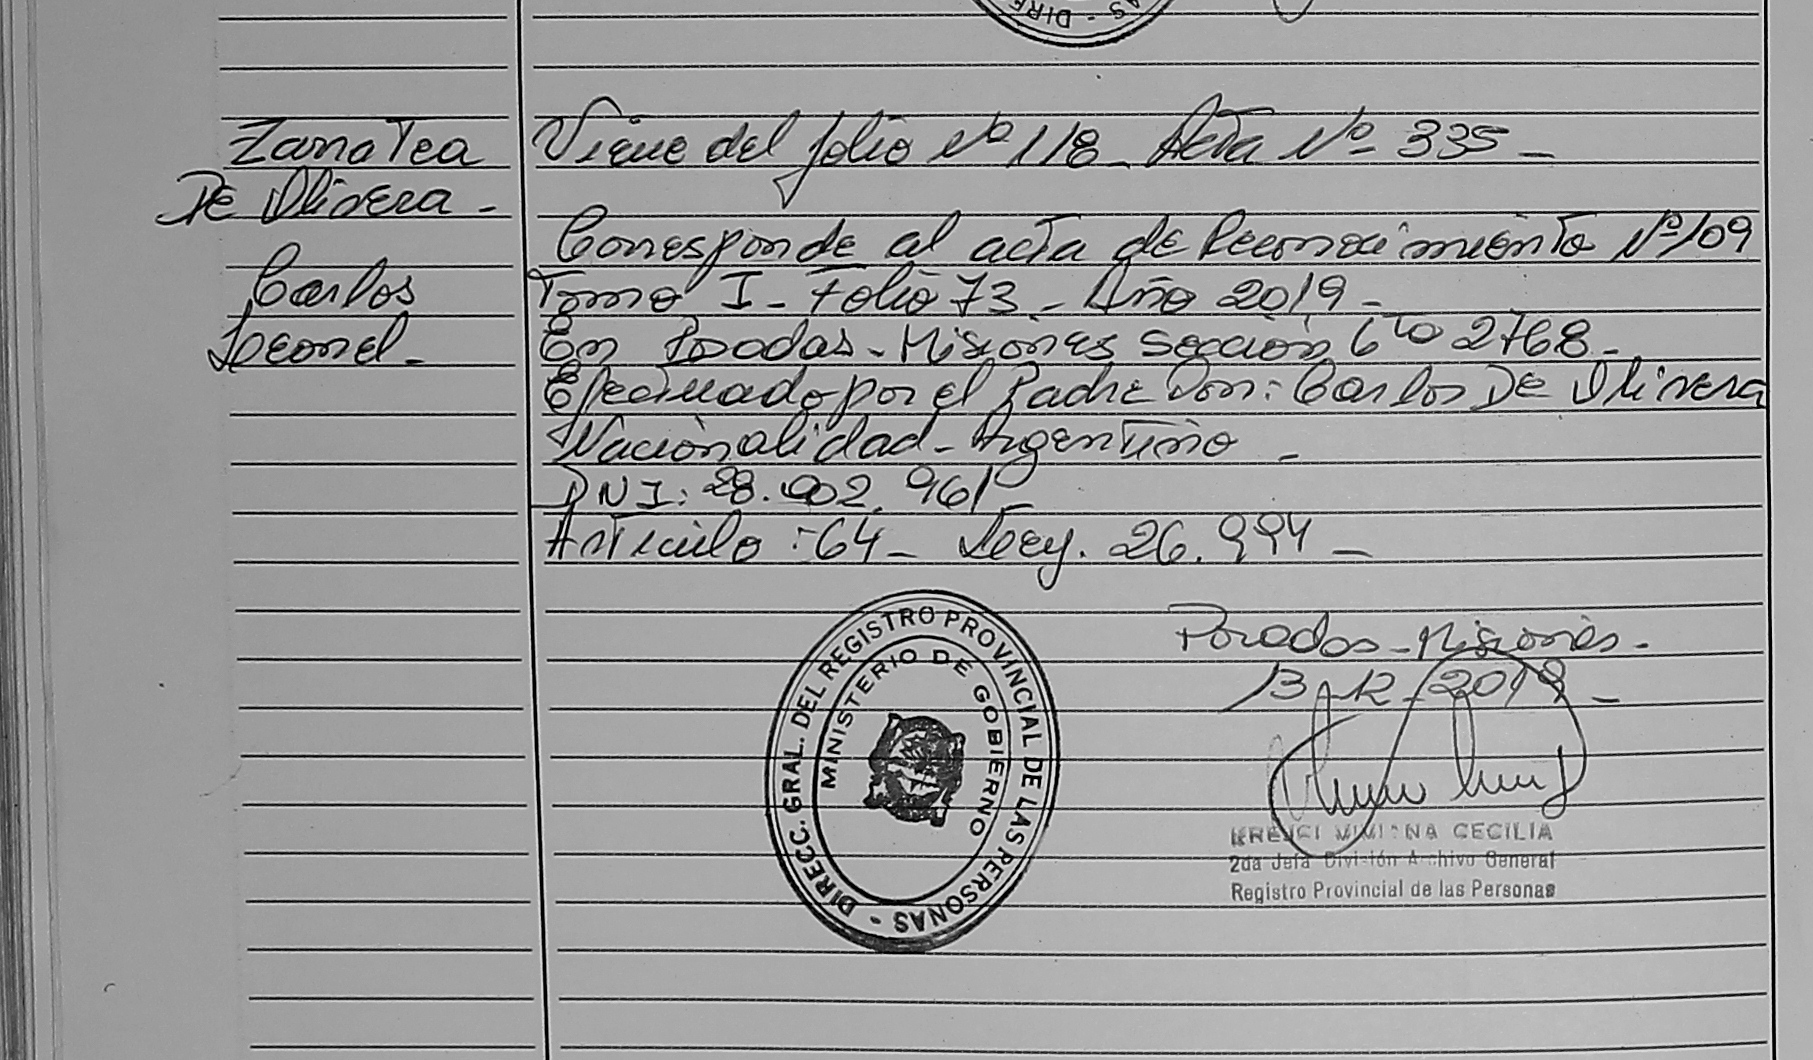 DIRE
AS -
Zanotea
De Olivera -
Carlos
Leonel -
Viene del folio Nº 118 - Acta Nº 335 -
Corresponde al acta de Reconocimiento Nº 109
Tomo I - Folio 73 - Año 2019 -
En Posadas - Misiones Sección 6to 2768 -
Efectuado por el Padre Don: Carlos De Olivera
Nacionalidad - Argentino -
DNI: 28.902.961 -
Articulo : 64 - Ley. 26.994 -
DIRECC. GRAL. DEL REGISTRO PROVINCIAL DE LAS PERSONAS -
MINISTERIO DE GOBIERNO
Posadas - Misiones -
13 - 12 - 2019 -
CECILIA
2da Jefa División Archivo General
Registro Provincial de las Personas